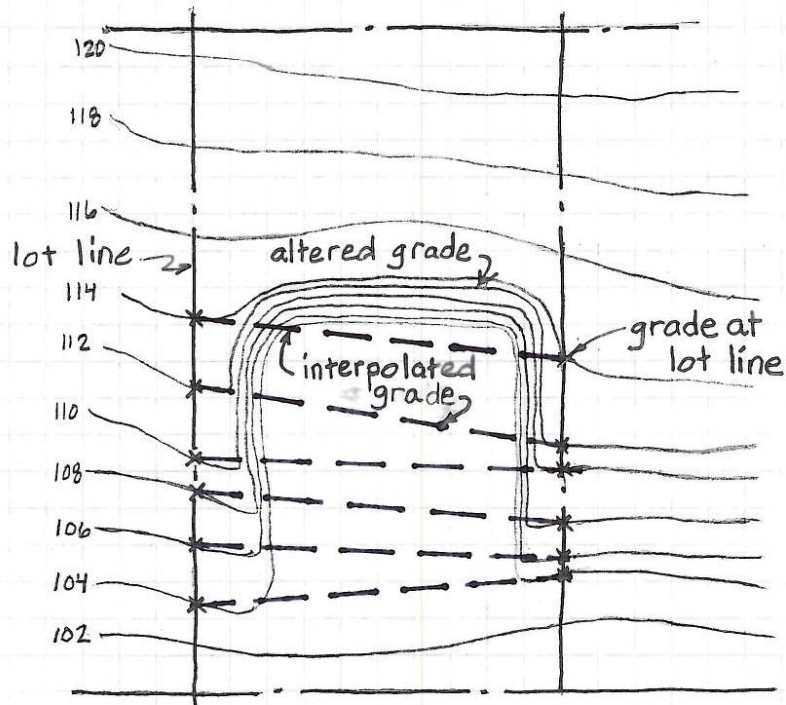 120
118
116
lot line
altered grade
114
grade at
lot line
112
interpolated
grade
110
108
106
104
102